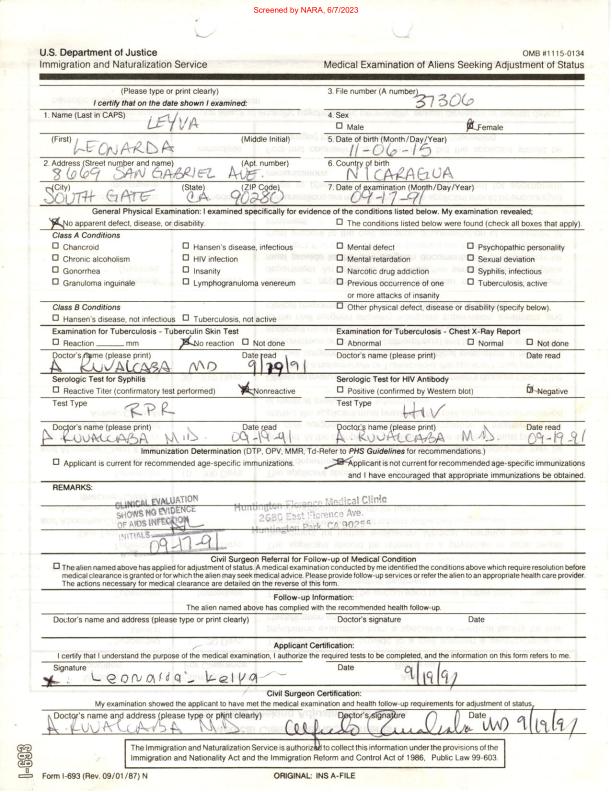 Screened by NARA, 6/7/2023
U.S. Department of Justice OMB #1115-0134
Immigration and Naturalization Service Medical Examination of Aliens Seeking Adjustment of Status
(Please type or print clearly) 3. File number (A number)
I certify that on the date shown I examined: 37306
1. Name (Last in CAPS) LEYVA 4. Sex
☐ Male ☒ Female
(First) LEONARDA (Middle Initial) 5. Date of birth (Month/Day/Year) 11-06-15
2. Address (Street number and name) (Apt. number) 6. Country of birth
8669 SAN GABRIEL AVE. NICARAGUA
(City) (State) (ZIP Code) 7. Date of examination (Month/Day/Year)
SOUTH GATE CA. 90280 09-17-91
General Physical Examination: I examined specifically for evidence of the conditions listed below. My examination revealed;
☒ No apparent defect, disease, or disability. ☐ The conditions listed below were found (check all boxes that apply).
Class A Conditions
☐ Chancroid ☐ Hansen's disease, infectious ☐ Mental defect ☐ Psychopathic personality
☐ Chronic alcoholism ☐ HIV infection ☐ Mental retardation ☐ Sexual deviation
☐ Gonorrhea ☐ Insanity ☐ Narcotic drug addiction ☐ Syphilis, infectious
☐ Granuloma inguinale ☐ Lymphogranuloma venereum ☐ Previous occurrence of one ☐ Tuberculosis, active
or more attacks of insanity
Class B Conditions ☐ Other physical defect, disease or disability (specify below).
☐ Hansen's disease, not infectious ☐ Tuberculosis, not active
Examination for Tuberculosis - Tuberculin Skin Test Examination for Tuberculosis - Chest X-Ray Report
☐ Reaction ______ mm ☒ No reaction ☐ Not done ☐ Abnormal ☐ Normal ☐ Not done
Doctor's name (please print) Date read Doctor's name (please print) Date read
A RUVALCABA MD 9/19/91
Serologic Test for Syphilis Serologic Test for HIV Antibody
☐ Reactive Titer (confirmatory test performed) ☒ Nonreactive ☐ Positive (confirmed by Western blot) ☒ Negative
Test Type RPR Test Type HIV
Doctor's name (please print) Date read Doctor's name (please print) Date read
A. RUVALCABA M.D. 09-19-91 A. RUVALCABA M.D. 09-19-91
Immunization Determination (DTP, OPV, MMR, Td-Refer to PHS Guidelines for recommendations.)
☐ Applicant is current for recommended age-specific immunizations. ☒ Applicant is not current for recommended age-specific immunizations
and I have encouraged that appropriate immunizations be obtained.
REMARKS:
CLINICAL EVALUATION
SHOWS NO EVIDENCE
OF AIDS INFECTION
INITIALS
09-17-91
Huntington Florence Medical Clinic
2680 East Florence Ave.
Huntington Park, CA 90255
Civil Surgeon Referral for Follow-up of Medical Condition
☐ The alien named above has applied for adjustment of status. A medical examination conducted by me identified the conditions above which require resolution before
medical clearance is granted or for which the alien may seek medical advice. Please provide follow-up services or refer the alien to an appropriate health care provider.
The actions necessary for medical clearance are detailed on the reverse of this form.
Follow-up Information:
The alien named above has complied with the recommended health follow-up.
Doctor's name and address (please type or print clearly) Doctor's signature Date
Applicant Certification:
I certify that I understand the purpose of the medical examination, I authorize the required tests to be completed, and the information on this form refers to me.
Signature Date
x. Leonarda Leiva 9/19/91
Civil Surgeon Certification:
My examination showed the applicant to have met the medical examination and health follow-up requirements for adjustment of status.
Doctor's name and address (please type or print clearly) Doctor's signature Date
A. RUVALCABA M.D. Alfredo Ruvalcaba MD 9/19/91
The Immigration and Naturalization Service is authorized to collect this information under the provisions of the
Immigration and Nationality Act and the Immigration Reform and Control Act of 1986, Public Law 99-603.
I-693
Form I-693 (Rev. 09/01/87) N ORIGINAL: INS A-FILE